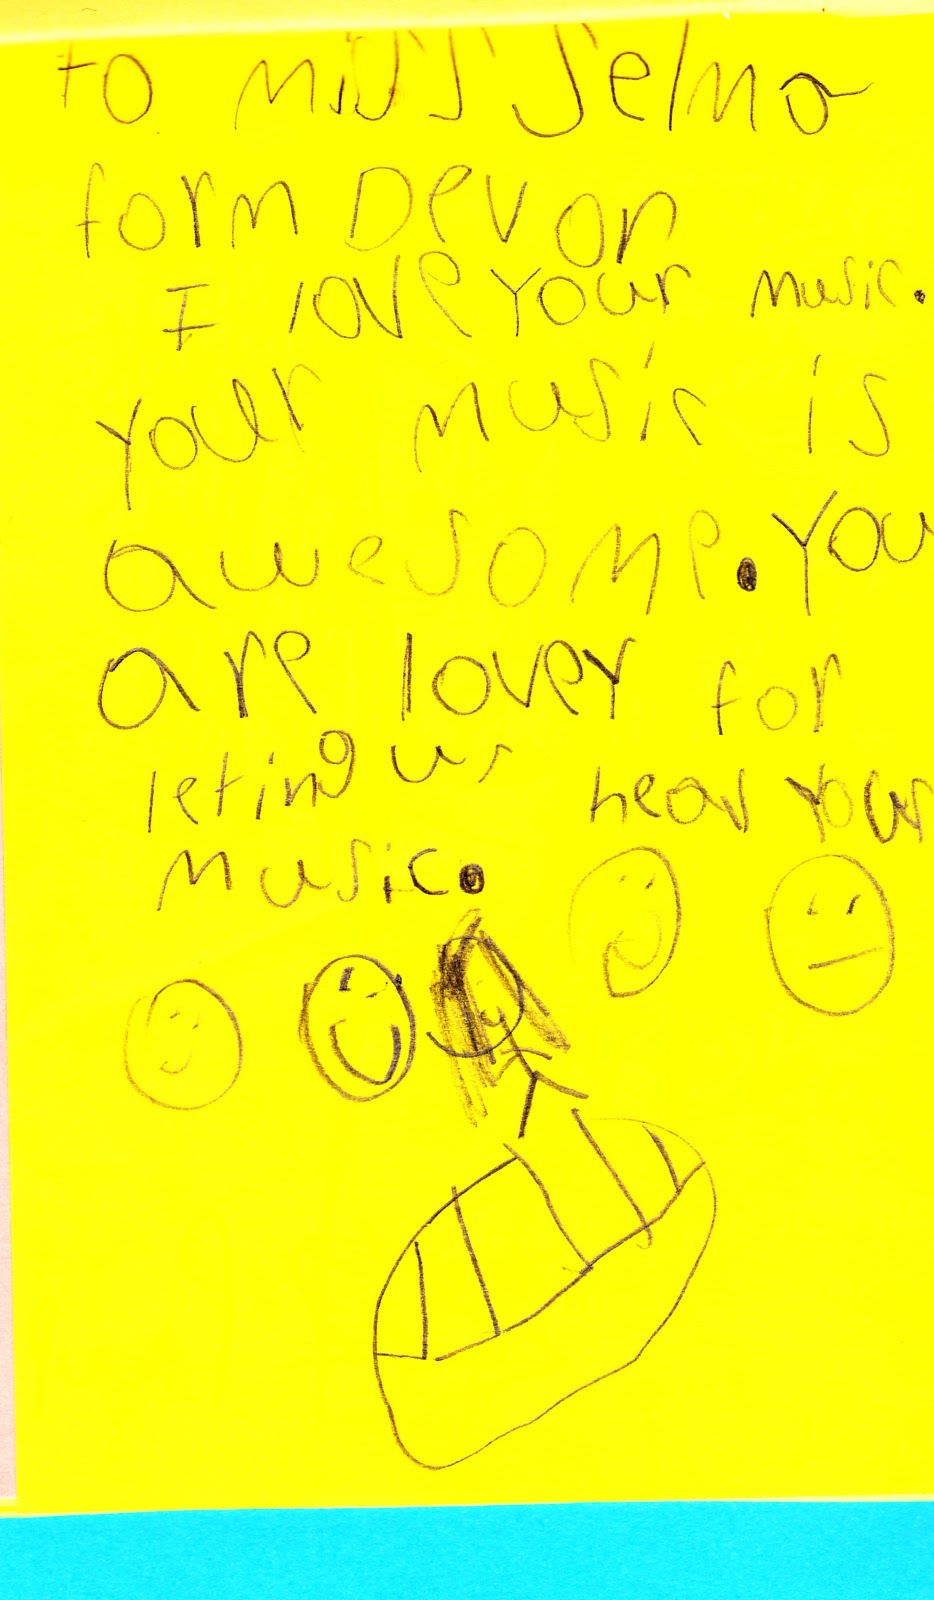 to miss Selma
form Devon
I love your music.
your music is
awesome. You
are lovey for
leting us hear your
music.